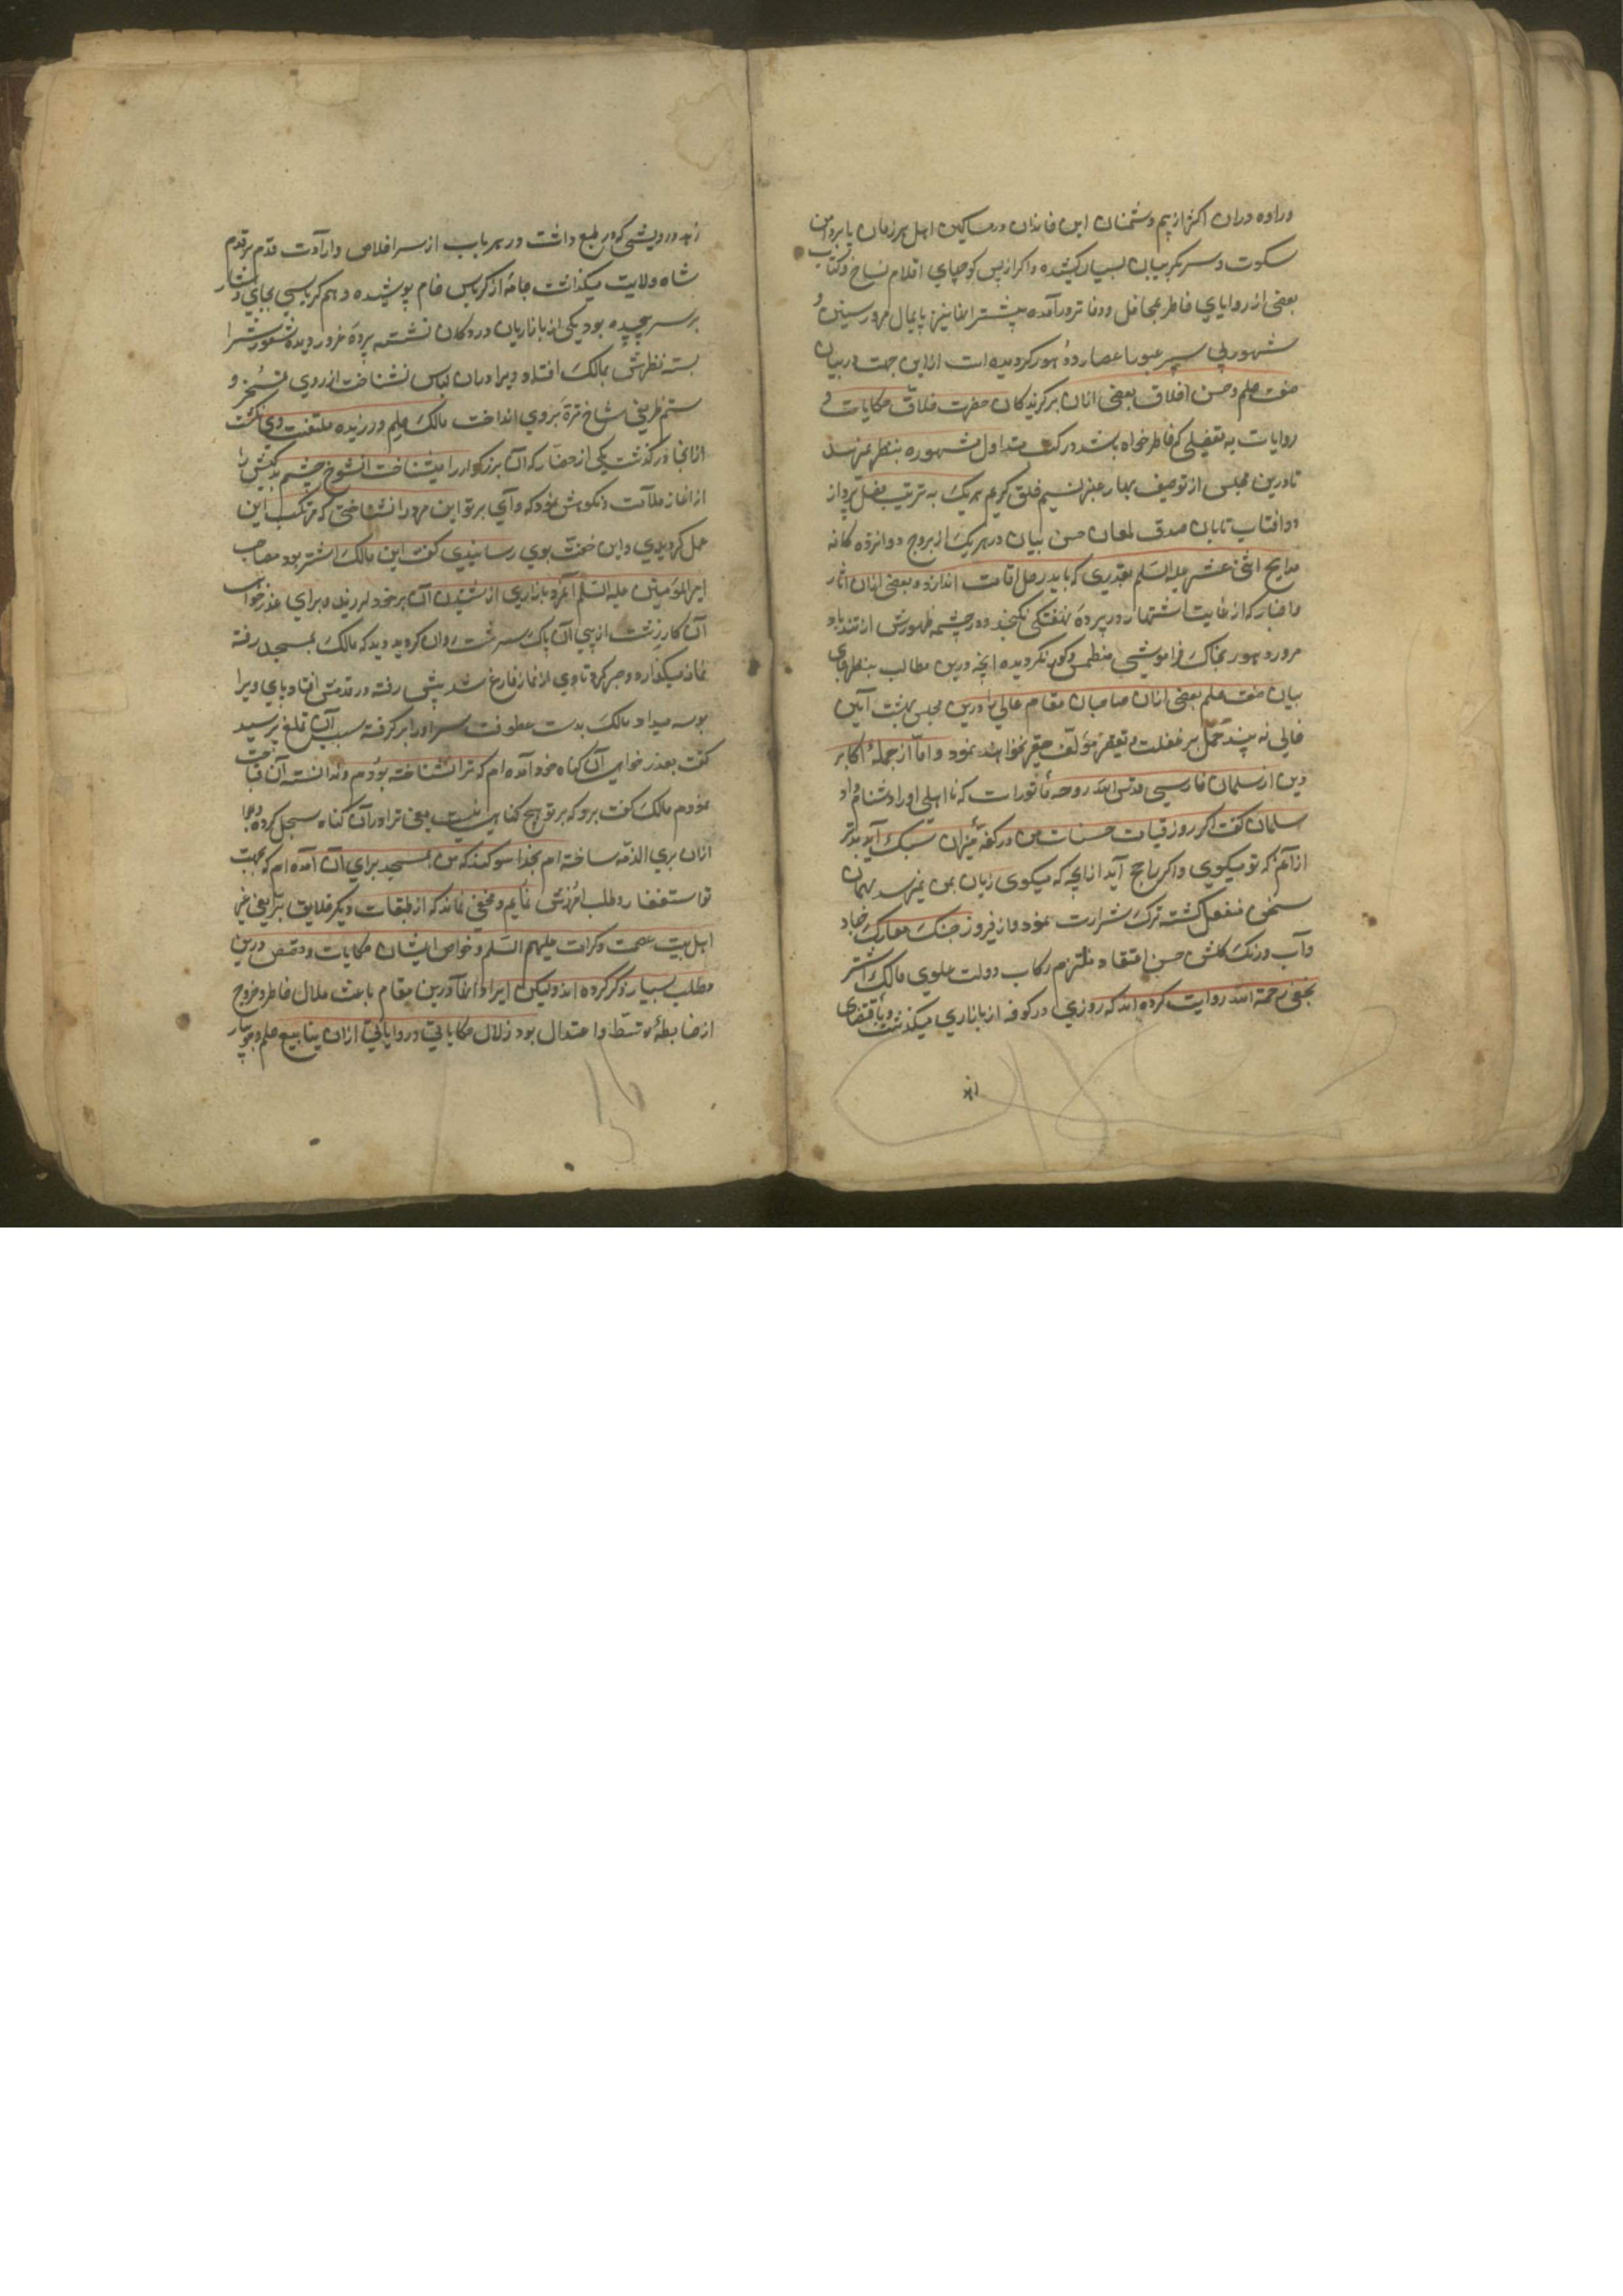 دراوه دران اکثر از بیم دشمنان این خاندان در مساکین اهل هر زمان پا بردامن
سکوت و سر بکریبان بسیان کشیده و اکر از پس کوچهای اقلام نساخ و کتاب
بعضی از روایای خاطر بمحافل و دفاتر درآمده بیشتر انها نیز پایمال مرور سنین و
شهور پی سپر عبور اعصار و دهور کردیده است ازاین جهت در بیان
صفت حلم و حسن اخلاق بعضی ازان برکزیدکان حضرت خلاق حکایات و
روایات به تفضیلی که خاطر خواه باشد در کتب متداول مشهوره بنظر نمیرسد
تا درین مجلس از توصیف بهار عنبر نسیم خلق کریم هر یک به ترتیب فصل پرداز
دو افتاب تابان صدق لمعان حسن بیان در هر یک از بروج دوازده کانه
مدایح اثنی عشر علیه السلم بقدری که باید رحل اقامت اندازد و بعضی ازان اثار
و اخبار که از غایت اشتهار در پرده نهفتکی نکنجد و در چشمه ظهورش از تندباد
مرور دهور بخاک فراموشی منطمس و کور نکردیده انچه درین مطالب بنظر
بیان صفت حلم بعضی ازان صاحبان مقام عالی را درین مجلس بهشت آئین
خالی نه پسندد حمل بر غفلت و تقصیر مؤلف حقیر نخواهند نمود و اما از جملهٔ اکابر
دین از سلمان فارسی قدس الله روحه مأثورات که نا اهلی او را دشنام داد
سلمان کفت اکر روز قیامت حسنات من در کفهٔ میزان سبک آید بدتر
ازآنم که تو میکوی و اکر راجح آید ازانچه که میکوی زیان بمن نمیرسد بهمان
سخن منفعل کشته ترک شرارت نمود و از فیروز جنک معارک جهاد
و آب و رنک کلشن حسن اعتقاد ملتزم رکاب دولت علوی مالک اشتر
نخعی رحمة الله روایت کرده اند که روزی در کوفه از بازاری میکذشت و باقتضای
زهد و درویشی که در طبع داشت در هر باب از سر اخلاص و ارادت قدم بر قدم
شاه ولایت میکذاشت جامهٔ از کرباس خام پوشیده و هم کرباسی بجای دستار
بر سر پیچیده بود یکی از بازاریان در دکان نشسته پردهٔ غرور دیده شعورش را
بسته نظرش بمالک افتاد و ویرا دران لباس نشناخت از روی تمسخر و
ستم ظریفی شاخ ترهٔ بروی انداخت مالک حلم ورزیده ملتفت وی نکشت
ازانجا درکذشت یکی از حضار که آن بزرکوار را میشناخت آنشوخ چشم بدکیش را
از اغاز ملامت و نکوهش نمود که وآی برتو این مرد را نشناختی که مرتکب این
عمل کردیدی و این خفت بوی رسانیدی کفت این مالک اشتر بود مصاحب
امیرالمؤمنین علیه السلم آنمرد بازاری از شنیدن آن بر خود لرزید و برای عذر خواهی
آن کار زشت از پی آن پاک سرشت روان کردید دید که مالک بمسجد رفته
نماز میکذارد صبر کرد تا وی از نماز فارغ شد پیش رفته در قدمش افتاد پای ویرا
بوسه میداد مالک بدست عطوفت سر او را برکرفته سبب آن تملغ پرسید
کفت بعذر خواهی آن کناه خود آمده ام که ترا نشناخته بودم و ندانسته آن قباحت
نمودم مالک کفت برو که بر تو هیچ کناهی نیست یعنی ترا در آن کناه سجل کرده و
ازان بری الذمه ساخته ام بخدا سوکند که من بمسجد برای آن آمده ام که بجهت
تو استغفار و طلب امرزش نمایم و مخفی نماند که از طبقات دیکر خلایق یعنی غیر
اهل بیت عصمت و کرامت علیهم السلم و خواص ایشان حکایات و قصص درین
مطلب بسیار ذکر کرده اند ولیکن ایراد انها درین مقام باعث ملال خاطر و خروج
از ضابطهٔ توسط و اعتدال بود زلال حکایاتی و روایاتی ازان ینابیع حلم و